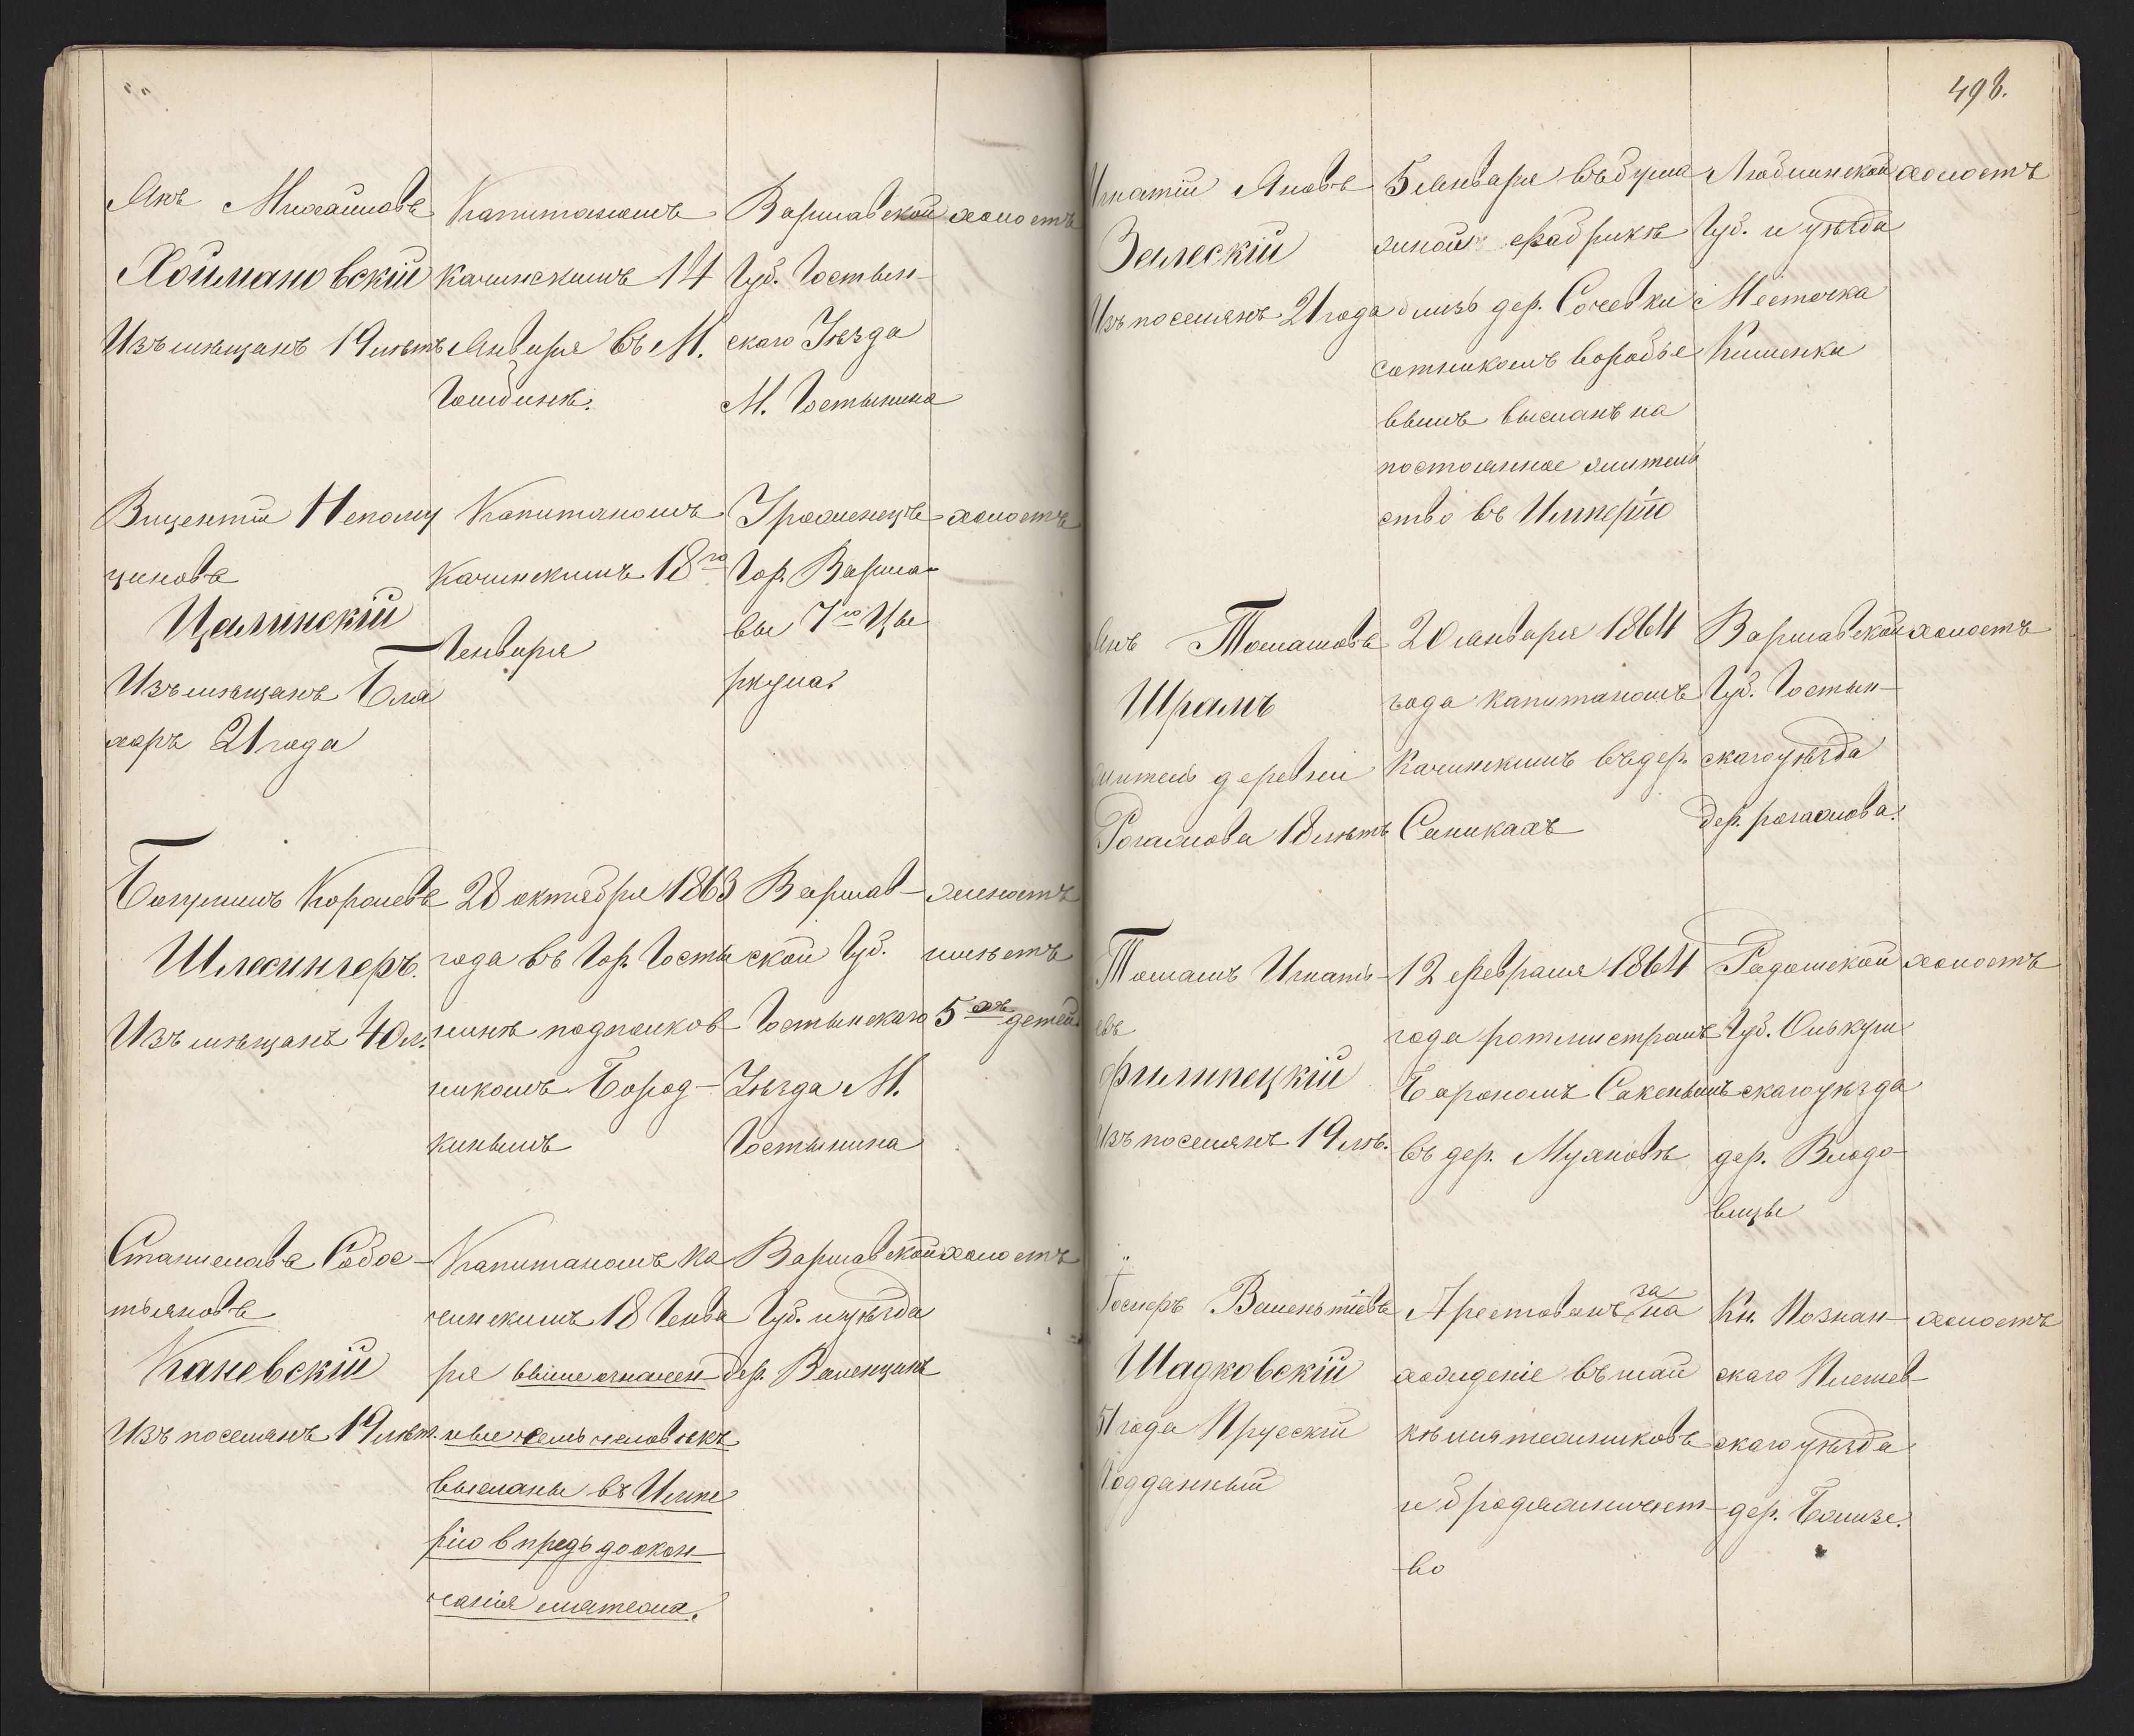 Янъ Михайловъ
Хоймановскій
Изъ мѣщанъ 19 лѣтъ
Капитаномъ
Качинскимъ 14
Января въ М.
Гомбинѣ.
Варшавской
Губ. Гостын-
скаго Уѣзда
М. Гостынина
холостъ
Вицентій Непому
циновъ
Цалинскій
Изъ мѣщанъ Бла
харъ 21 года
Капитаномъ
Качинскимъ 18го
Генваря
Уроженецъ
Гор. Варша-
вы 7го Цы
ркула.
холостъ
Богумилъ Королевъ
Шлесингеръ.
Изъ мѣщанъ 40 л.
28 октября 1863
года въ Гор. Госты
нинѣ подполков-
никомъ Бород-
кинымъ
Варшав-
ской Губ.
Гостынскаго
Уѣзда М.
Гостынина
женатъ
имѣетъ
5хъ детей
Станиславъ Собос-
тьяновъ
Каневскій
Изъ поселянъ 19 лѣт.
Капитаномъ Ка
чинскимъ 18 Генва
ря выше означен-
ные семь человѣкъ
высланы въ Импе
рію впредь до окон-
чанія мятежа.
Варшавской
Губ. и уѣзда
дер. Валенцинъ
холостъ
498.
Игнатій Яновъ
Зелескій
Изъ поселянъ 21 года
5 Января въ бума
жной фабрикѣ
близь дер. Сочевки
сотникомъ Воробье
вымъ высланъ на
постоянное житель
ство въ Имперію
Люблинской
Губ. и уѣзда
Местечка
Кишенка
холостъ
Янъ Томашовъ
Шрамъ
житель деревни
Рогажнова 18 лѣтъ
20 января 1864
года капитаномъ
Качинскимъ въ дер.
Саникахъ
Варшавской
Губ. Гостын-
скаго уѣзда
дер. рогажнова.
холостъ
Томашъ Игнать-
евъ
Филипецкій
Изъ поселянъ 19 лѣ.
12 февраля 1864
года ротмистромъ
Барономъ Сакеномъ
въ дер. Мухновѣ
Радомской
Губ. Олькуш
скаго уѣзда
дер. Влодо-
вицы
холостъ
Госперъ Валентіевъ
Шадковскій
51 года Прускій
Подданный
Арестованъ за на
хожденіе въ шай
кѣ мятежниковъ
и бродяжничест-
во
Кн. Познан-
скаго Плешев-
скаго уѣзда
дер. Бомизе.
холостъ